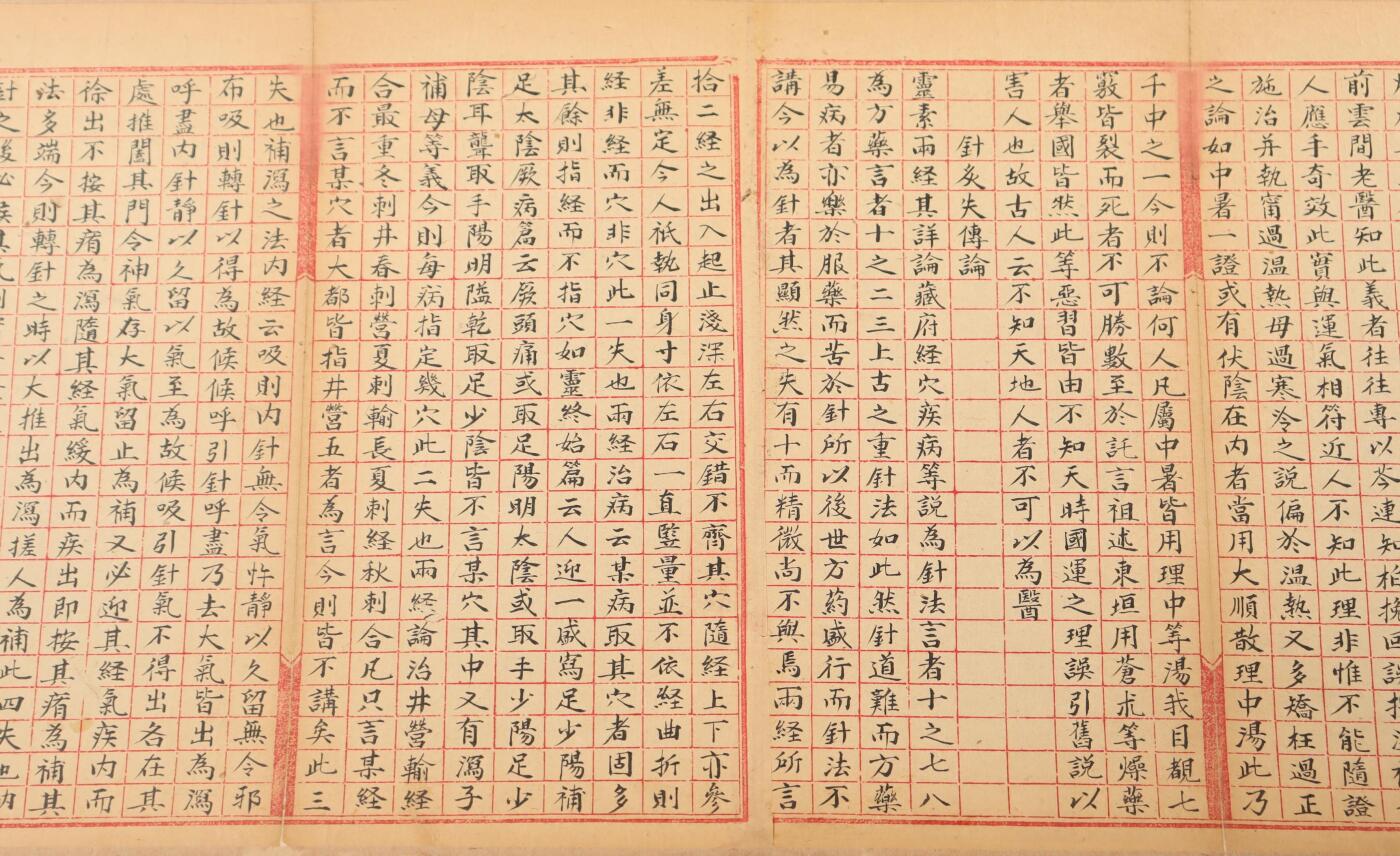 前雲間老醫知此義者往往專以芩連知柏挽回誤
人應手奇效此實與運氣相符近人不知此理非惟不能隨證
施治并執甯過温熱毋過寒冷之說偏於温熱又多矯枉過正
之論如中暑一證或有伏陰在內者當用大順散理中湯此乃
千中之一今則不論何人凡屬中暑皆用理中等湯我目覩七
竅皆裂而死者不可勝數至於託言祖述東垣用蒼朮等燥藥
者舉國皆然此等惡習皆由不知天時國運之理誤引舊說以
害人也故古人云不知天地人者不可以為醫
針灸失傳論
靈素兩経其詳論藏府経穴疾病等說為針法言者十之七八
為方藥言者十之二三上古之重針法如此然針道難而方藥
易病者亦樂於服藥而苦於針所以後世方葯盛行而針法不
講今以為針者其顯然之失有十而精微尚不與焉兩経所言
拾二経之出入起止淺深左右交錯不齊其穴隨経上下亦參
差無定今人祇執同身寸依左石一直竪量並不依経曲折則
経非経而穴非穴此一失也兩経治病云某病取其穴者固多
其餘則指経而不指穴如靈終始篇云人迎一盛寫足少陽補
足太陰厥病篇云厥頭痛或取足陽明太陰或取手少陽足少
陰耳聾取手陽明隘乾取足少陰皆不言某穴其中又有瀉子
補母等義今則每病指定幾穴此二失也兩経論治井營輸経
合最重冬刺井春刺營夏刺輸長夏刺経秋刺合凡只言某経
而不言某穴者大都皆指井營五者為言今則皆不講矣此三
失也補瀉之法內経云吸則內針無令氣忤靜以久留無令邪
布吸則轉針以得為故候候呼引針呼盡乃去大氣皆出為瀉
呼盡內針靜以久留以氣至為故候吸引針氣不得出各在其
處推闔其門令神氣存大氣留止為補又必迎其経氣疾內而
徐出不按其痏為瀉隨其経氣緩內而疾出即按其痏為補其
法多端今則轉針之時以大推出為瀉搓人為補此四失也內